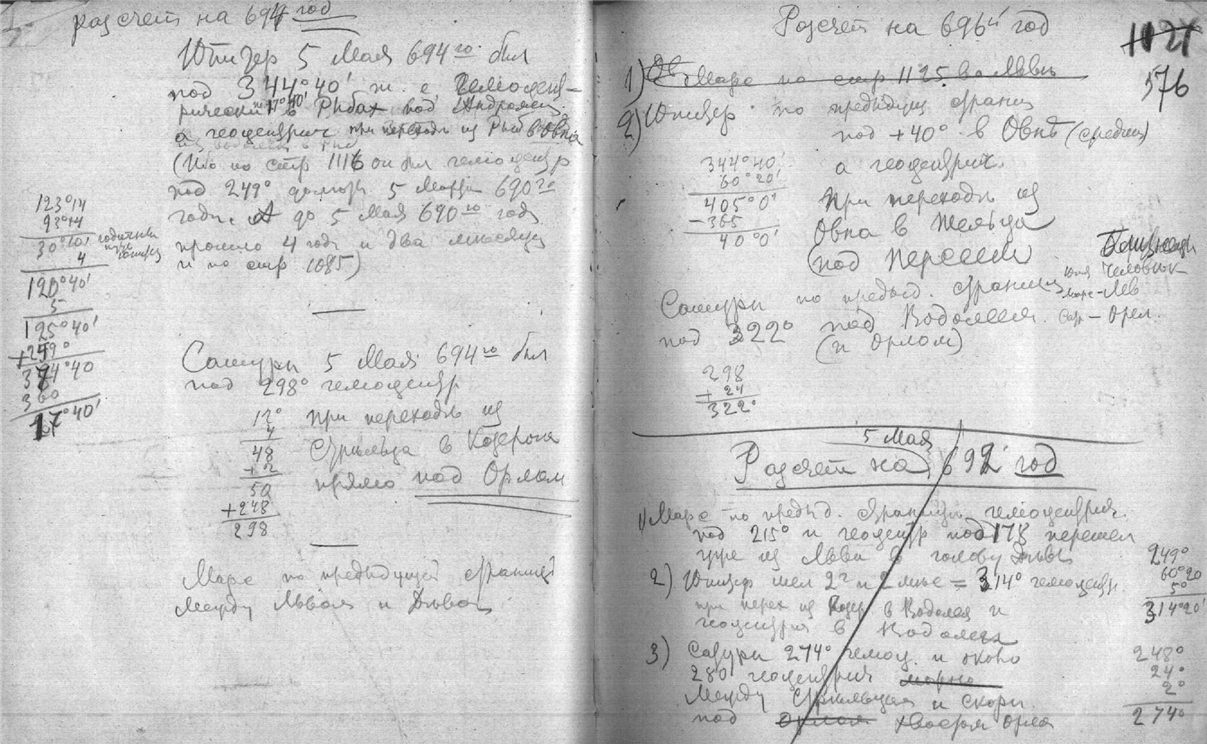 расчет на 694 год
Юпитер 5 Мая 694го был
под 344°40' т. е. гелиоцент-
рически в Рыбах под Андромед.
а геоцентрич при переходе из Рыб в Овна
(Ибо по стр 1116 он был гелиоцентр
под 249° долготы 5 Марта 690го
года. А до 5 Мая 690го года
прошло 4 года и два месяца
и по стр 1085)
123°14
93°14
30°10' годичный
4
120°40'
5
125°40'
+249°
374°40
360
17°40'
Сатурн 5 Мая 694го был
под 298° гелиоцентр
12° при переходе из
4
48 Стрельца в Козерога
+2
50 прямо под Орлом
+248
298
Марс по предыдущей странице
между Львом и Девой
Расчет на 696й год
1121
576
1) Марс по стр 1125 во Льве
2) Юпитер по предыдущ. страниц
под +40° в Овне (средних)
344°40' а геоцентрич.
60°20'
405°0' при переходе из
-365 Овна в Тельца
40°0' (под Персеем
Близнецы
Человек
Сатурн по предыд. страниц
-Марс-Лев
под 322° под Водолеем.
Сат-Орел.
(и Орлом)
298
+24
322°
5 Мая
Расчет на 692 год
1) Марс по предыд. странице гелиоцентрич.
под 215° и геоцентр под 178 перешел
уже из Льва в голову Девы
2) Юпитер шел 2г и 2 мес = 314° гелиоцентр.
при перех из Козер в Водолея и
геоцентрич в Водолея
249°
60°20
5°
314°20'
3) Сатурн 274° гелиоц. и около
280 геоцентрич
между Стрельцом и Скорп
под Орлом хвостом Орла
248°
24°
2°
274°